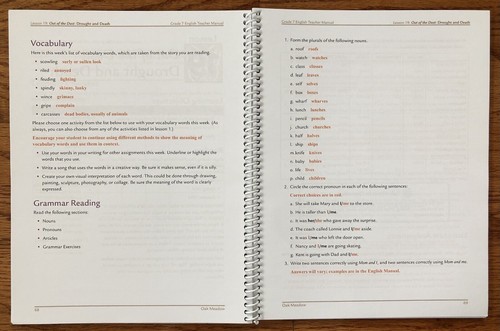 Lesson 19: Out of the Dust: Drought and Death
Grade 7 English Teacher Manual
Vocabulary
Here is this week's list of vocabulary words, which are taken from the story you are reading:
• scowling surly or sullen look
• riled annoyed
• feuding fighting
• spindly skinny, lanky
• wince grimace
• gripe complain
• carcasses dead bodies, usually of animals
Please choose one activity from the list below to use with your vocabulary words this week. (As
always, you can also choose from any of the activities listed in lesson 1.)
Encourage your student to continue using different methods to show the meaning of
vocabulary words and use them in context.
• Use your words in your writing for other assignments this week. Underline or highlight the
words that you use.
• Write a song that uses the words in a creative way. Be sure it makes sense, even if it is silly.
• Create your own visual interpretation of each word. This could be done through drawing,
painting, sculpture, photography, or collage. Be sure the meaning of the word is clearly
expressed.
Grammar Reading
Read the following sections:
• Nouns
• Pronouns
• Articles
• Grammar Exercises
Oak Meadow
Grade 7 English Teacher Manual
Lesson 19: Out of the Dust: Drought and Death
1. Form the plurals of the following nouns.
a. roof roofs
b. watch watches
c. class classes
d. leaf leaves
e. self selves
f. boss bosses
g. wharf wharves
h. lunch lunches
i. pencil pencils
j. church churches
k. half halves
l. ship ships
m. knife knives
n. baby babies
o. life lives
p. child children
2. Circle the correct pronoun in each of the following sentences:
Correct choices are in red.
a. She will take Mary and I/me to the store.
b. He is taller than I/me.
c. It was her/she who gave away the surprise.
d. The coach called Lonnie and I/me aside.
e. It was I/me who left the door open.
f. Nancy and I/me are going skating.
g. Kent is going with Dad and I/me.
3. Write two sentences correctly using Mom and I, and two sentences correctly using Mom and me.
Answers will vary; examples are in the English Manual.
Oak Meadow